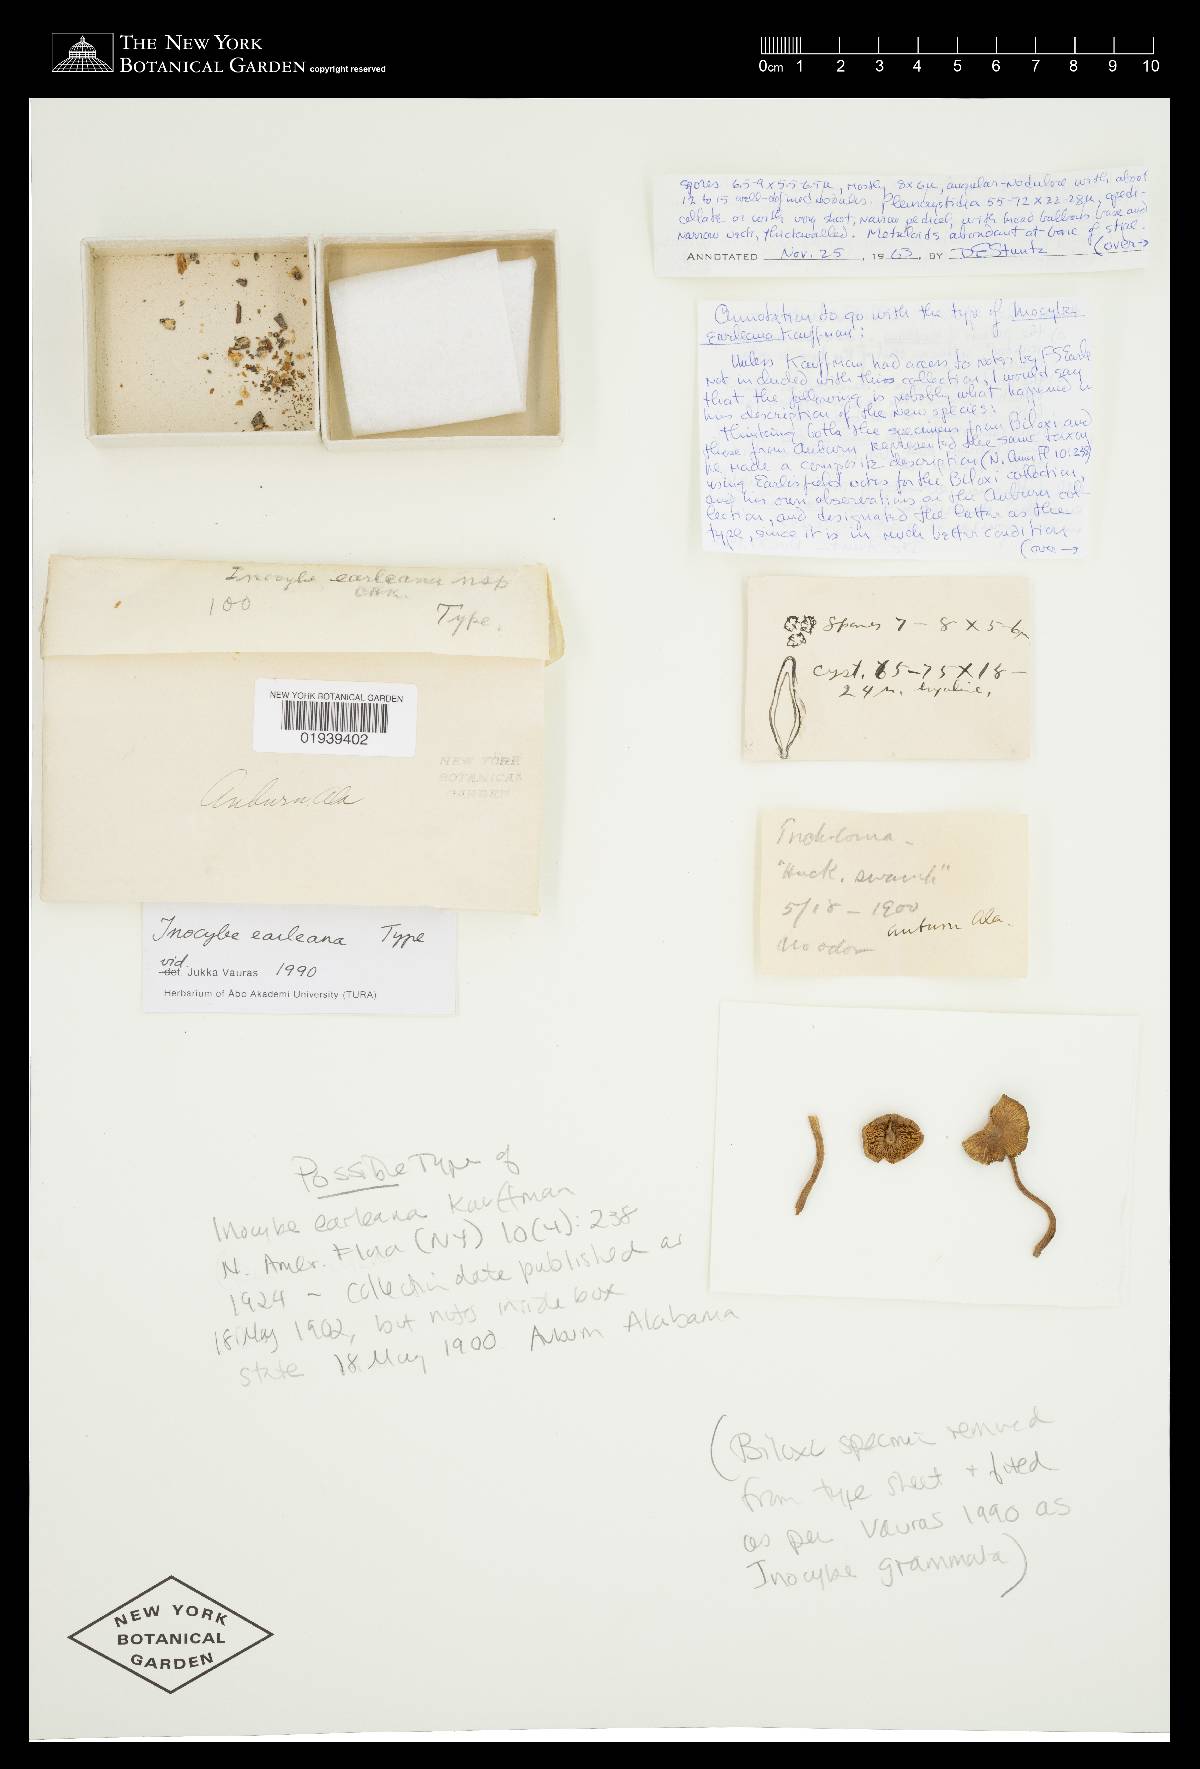 THE NEW YORK
BOTANICAL GARDEN copyright reserved
0cm 1 2 3 4 5 6 7 8 9 10
Spores 6.5-9 x 5.5-6.5µ, mostly 8x6µ, angular-nodulose with about
12 to 15 well-defined nodules. Pleurocystidia 55-72 x 22-28µ, apedi-
cellate or with very short, narrow pedicel, with broad bulbous base and
narrow neck, thickwalled. Metuloids abundant at base of stipe.
ANNOTATED Nov. 25, 1963, BY DEStuntz (over→
Annotation to go with the type of Inocybe
Earleana Kauffman:
Unless Kauffman had access to notes by FSEarle
not included with this collection, I would say
that the following is probably what happened in
his description of the new species:
Thinking both the specimens from Biloxi and
those from Auburn represented the same taxon
he made a composite description (N. Amer Fl 10:238)
using Earle's field notes for the Biloxi collection,
and his own observations on the Auburn col-
lection, and designated the latter as the
type, since it is in much better condition
(over→
Inocybe earleana nsp
CHK.
100 Type.
NEW YORK BOTANICAL GARDEN
01939402
NEW YORK
BOTANICAL
GARDEN
Auburn, Ala
Spores 7-8 x 5-6µ
cyst. 65-75 x 18-
24µ. hyaline,
"Huck. swamp"
5/18-1900
Auburn Ala.
No odor
Inocybe earleana Type
vid.
det Jukka Vauras 1990
Herbarium of Åbo Akademi University (TURA)
Possible Type of
Inocybe earleana Kauffman
N. Amer. Flora (NY) 10(4): 238
1924 - Collection date published as
18 May 1902, but notes inside box
state 18 May 1900 Auburn Alabama
(Biloxi specimen removed
from type sheet + filed
as per Vauras 1990 as
Inocybe grammata)
NEW YORK
BOTANICAL
GARDEN